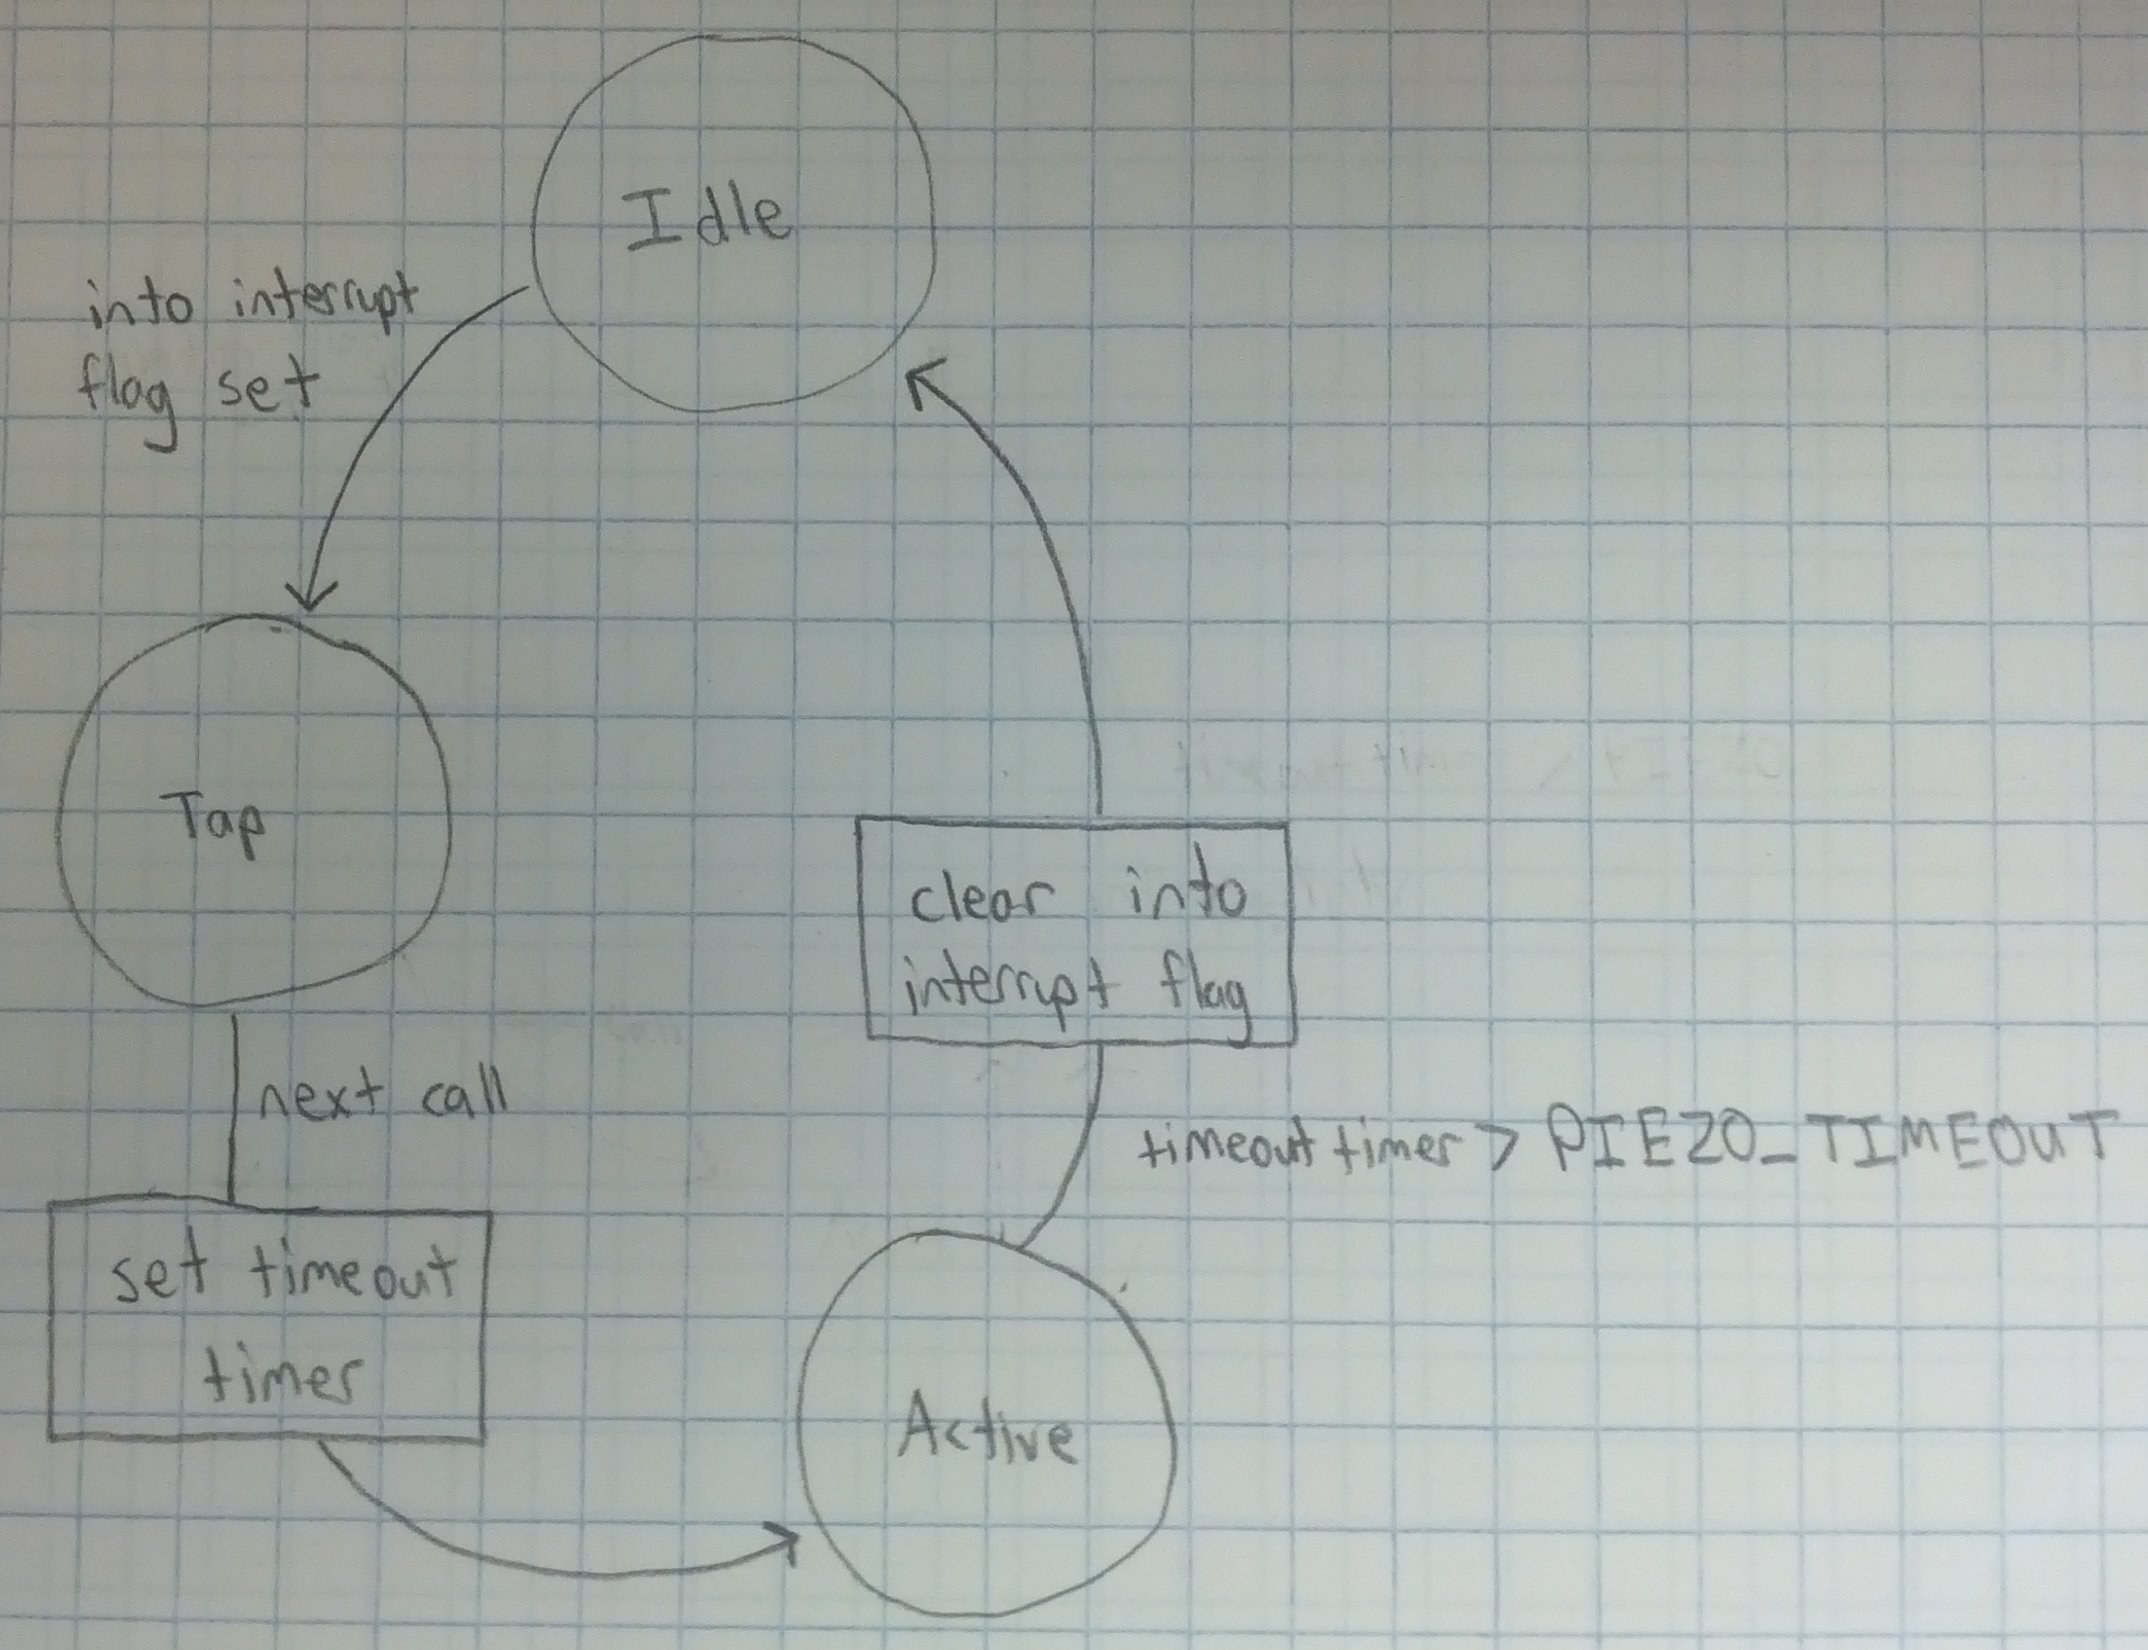 Idle
into interrupt
flag set
Tap
next call
set timeout
timer
Active
timeout timer > PIEZO_TIMEOUT
clear into
interrupt flag